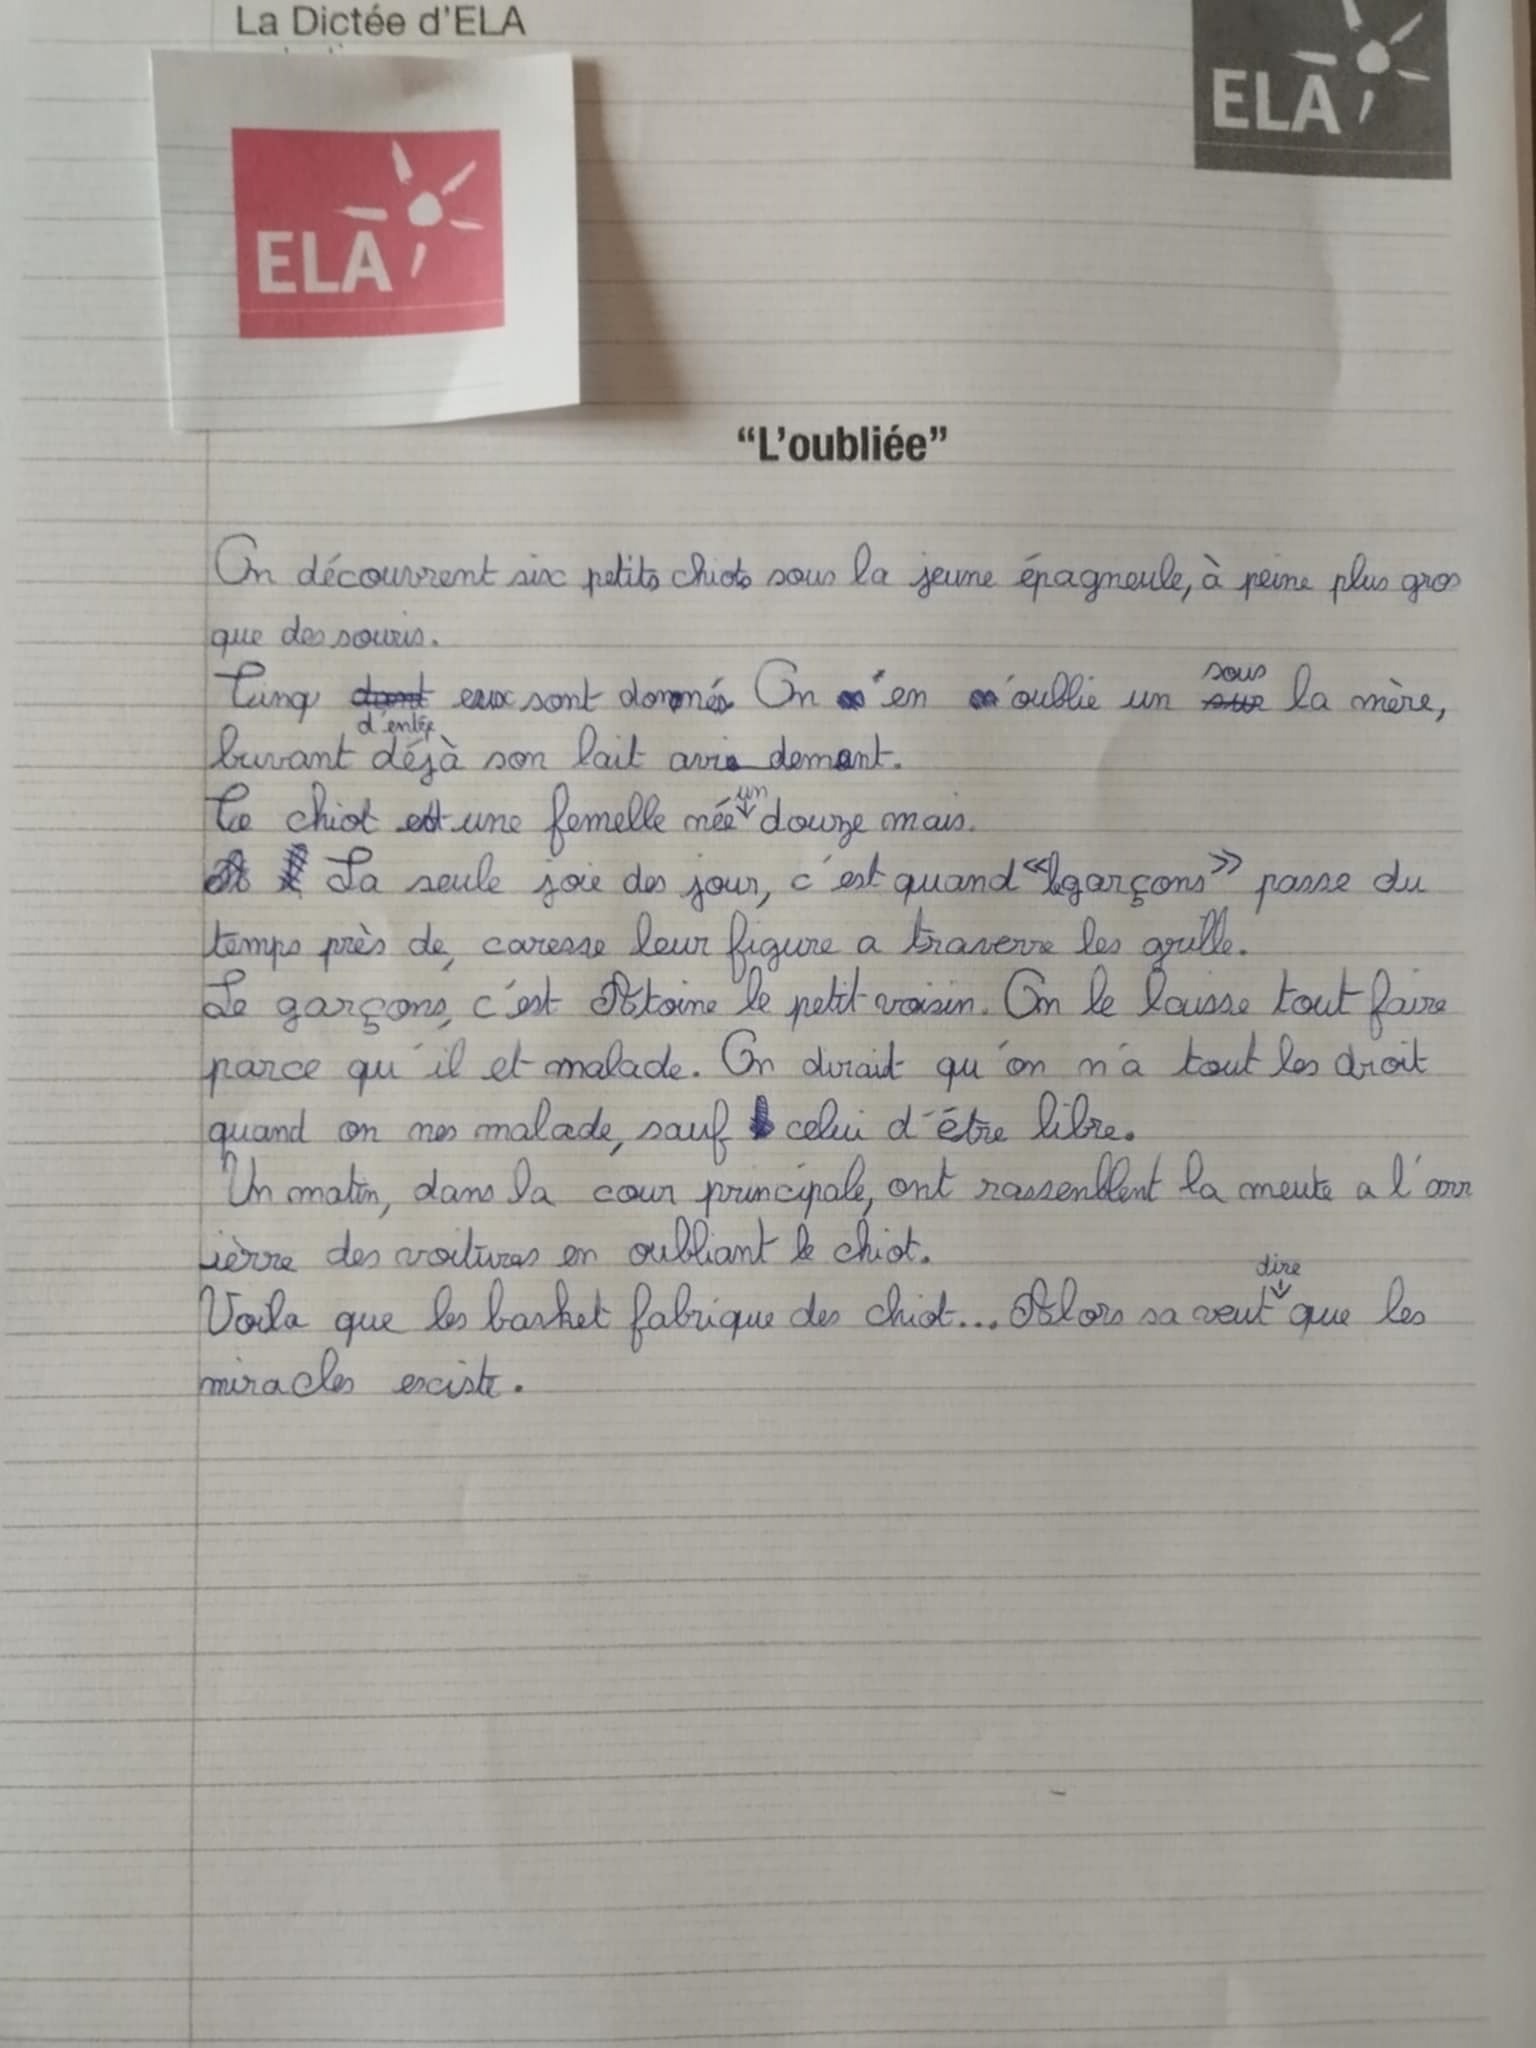 La Dictée d'ELA
ELA
ELA
“L'oubliée”
On découvrent six petits chiots sous la jeune épagneule, à peine plus gros
que des souris.
sous
Cinq eux sont donnés On en oublie un la mère,
d'entre
buvant déjà son lait avi demant.
un
Ce chiot est une femelle née douze mais.
La seule joie des jour, c'est quand « garçons » passe du
temps près de, caresse leur figure a traverre les grille.
Le garçons, c'est Atoine le petit voisin. On le laisse tout faire
parce qu'il et malade. On dirait qu'on n'a tout les droit
quand on nes malade, sauf celui d'être libre.
Un matin, dans la cour principale, ont rassenblent la meute a l'arr
ièrre des voitures en oubliant le chiot.
dire
Voila que les basket fabrique des chiot... Alors sa veut que les
miracles existe.